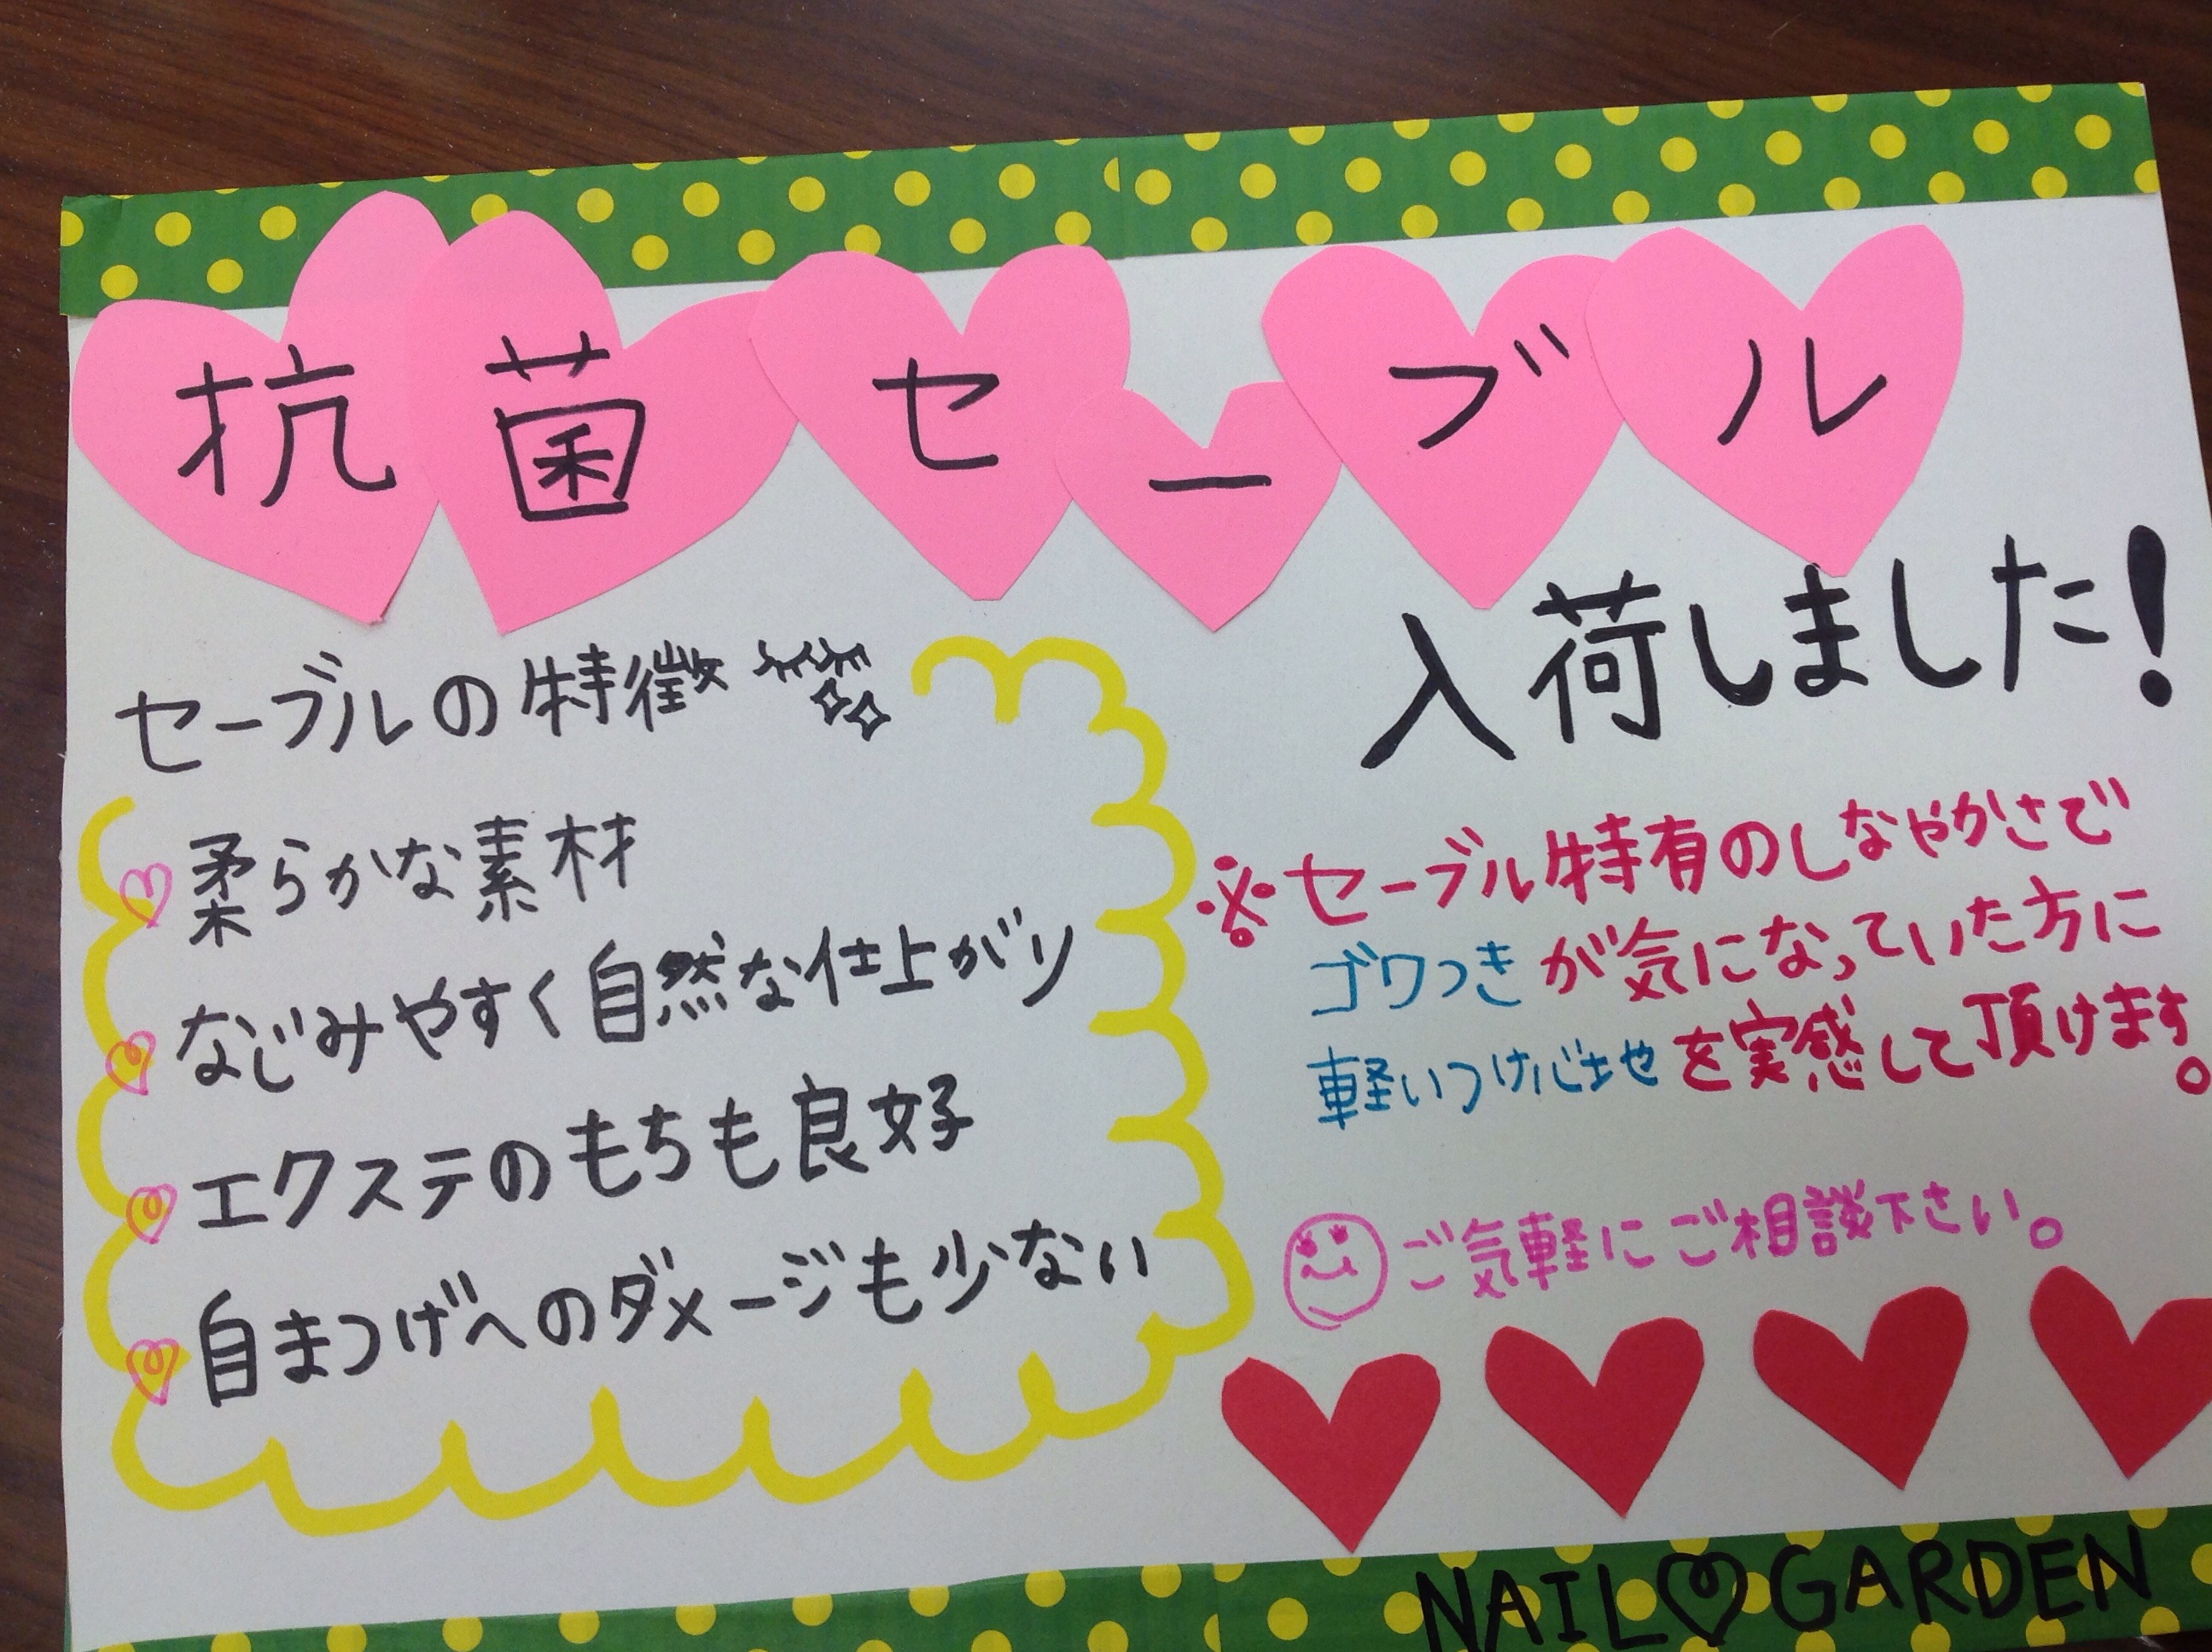 抗菌セーブル
入荷しました!
セーブルの特徴
柔らかな素材
なじみやすく自然な仕上がり
エクステのもちも良好
自まつげへのダメージも少ない
※セーブル特有のしなやかさで
ゴワつきが気になっていた方に
軽いつけ心地を実感して頂けます。
ご気軽にご相談下さい。
NAIL♡GARDEN